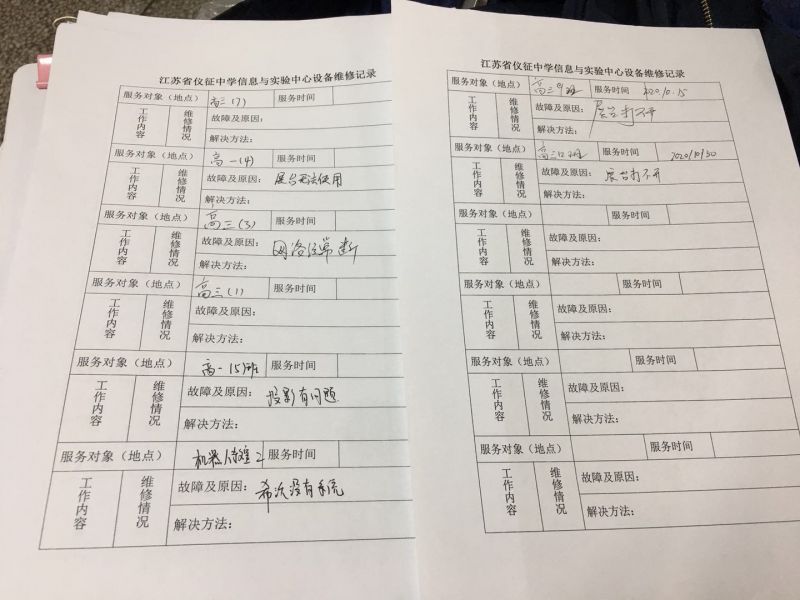 江苏省仪征中学信息与实验中心设备维修记录
服务对象（地点） 高三(7) 服务时间
工作内容 维修情况 故障及原因：
解决方法：
服务对象（地点） 高一(4) 服务时间
工作内容 维修情况 故障及原因： 展台无法使用
解决方法：
服务对象（地点） 高三(3) 服务时间
工作内容 维修情况 故障及原因： 网络经常断
解决方法：
服务对象（地点） 高三(1) 服务时间
工作内容 维修情况 故障及原因：
解决方法：
服务对象（地点） 高一(5)班 服务时间
工作内容 维修情况 故障及原因： 投影有问题
解决方法：
服务对象（地点） 机器人 2 服务时间
工作内容 维修情况 故障及原因： 希沃没有系统
解决方法：
江苏省仪征中学信息与实验中心设备维修记录
服务对象（地点） 高三9班 服务时间 2020.10.15
工作内容 维修情况 故障及原因： 展台打不开
解决方法：
服务对象（地点） 高三12班 服务时间 2020/10/30
工作内容 维修情况 故障及原因： 展台打不开
解决方法：
服务对象（地点） 服务时间
工作内容 维修情况 故障及原因：
解决方法：
服务对象（地点） 服务时间
工作内容 维修情况 故障及原因：
解决方法：
服务对象（地点） 服务时间
工作内容 维修情况 故障及原因：
解决方法：
服务对象（地点） 服务时间
工作内容 维修情况 故障及原因：
解决方法：